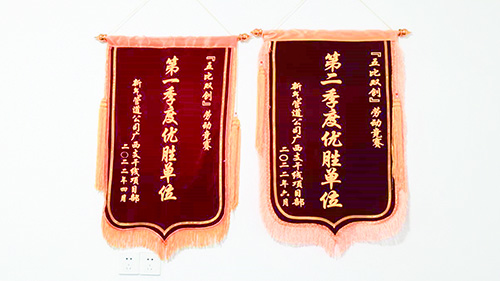 『五比双创』劳动竞赛
第一季度优胜单位
新气管道公司广西支干线项目部
二〇二二年四月
『五比双创』劳动竞赛
第二季度优胜单位
新气管道公司广西支干线项目部
二〇二二年六月